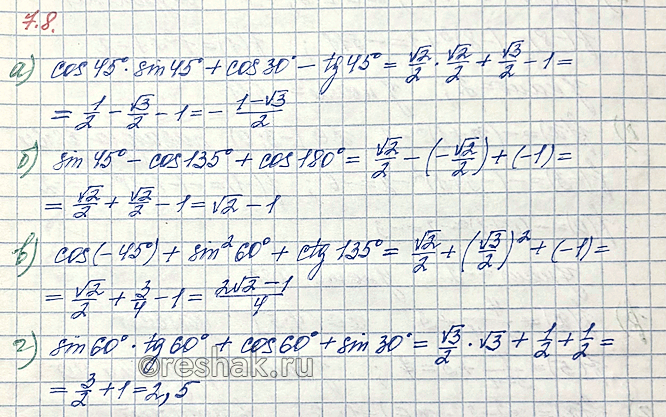 7.8.
а) cos 45° · sin 45° + cos 30° − tg 45° = √2/2 · √2/2 + √3/2 − 1 =
= 1/2 − √3/2 − 1 = − (1−√3)/2
б) sin 45° − cos 135° + cos 180° = √2/2 − (−√2/2) + (−1) =
= √2/2 + √2/2 − 1 = √2 − 1
в) cos(−45°) + sin² 60° + ctg 135° = √2/2 + (√3/2)² + (−1) =
= √2/2 + 3/4 − 1 = (2√2 − 1)/4
г) sin 60° · tg 60° + cos 60° + sin 30° = √3/2 · √3 + 1/2 + 1/2 =
= 3/2 + 1 = 2,5
©reshak.ru